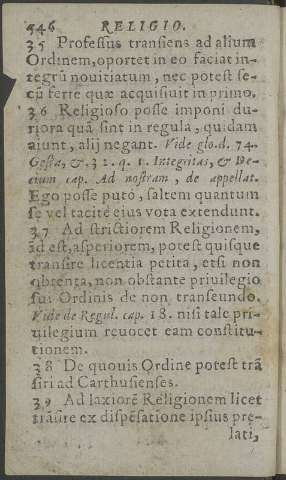 546 RELIGIO.
35 Professus transiens ad alium
Ordinem, oportet in eo faciat in-
tegrũ novitiatum, nec potest se-
cũ ferre quæ acquisiuit in primo.
36 Religioso posse imponi du-
riora quã sint in regula, quidam
aiunt, alij negant. Vide glo.d. 74.
Gesta, & 32. q. 1. Integritas, & De-
cium cap. Ad nostram, de appellat.
Ego posse putò, saltem quantum
se vel tacitè eius vota extendunt.
37 Ad strictiorem Religionem,
id est, asperiorem, potest quisque
transire licentia petita, etsi non
obtenta, non obstante priuilegio
sui Ordinis de non transeundo.
Vide de Regul. cap. 18. nisi tale pri-
uilegium reuocet eam constitu-
tionem.
38 De quouis Ordine potest trã
siri ad Carthusienses.
39 Ad laxiorẽ Religionem licet
trãsire ex dispẽsatione ipsius prę-
lati,